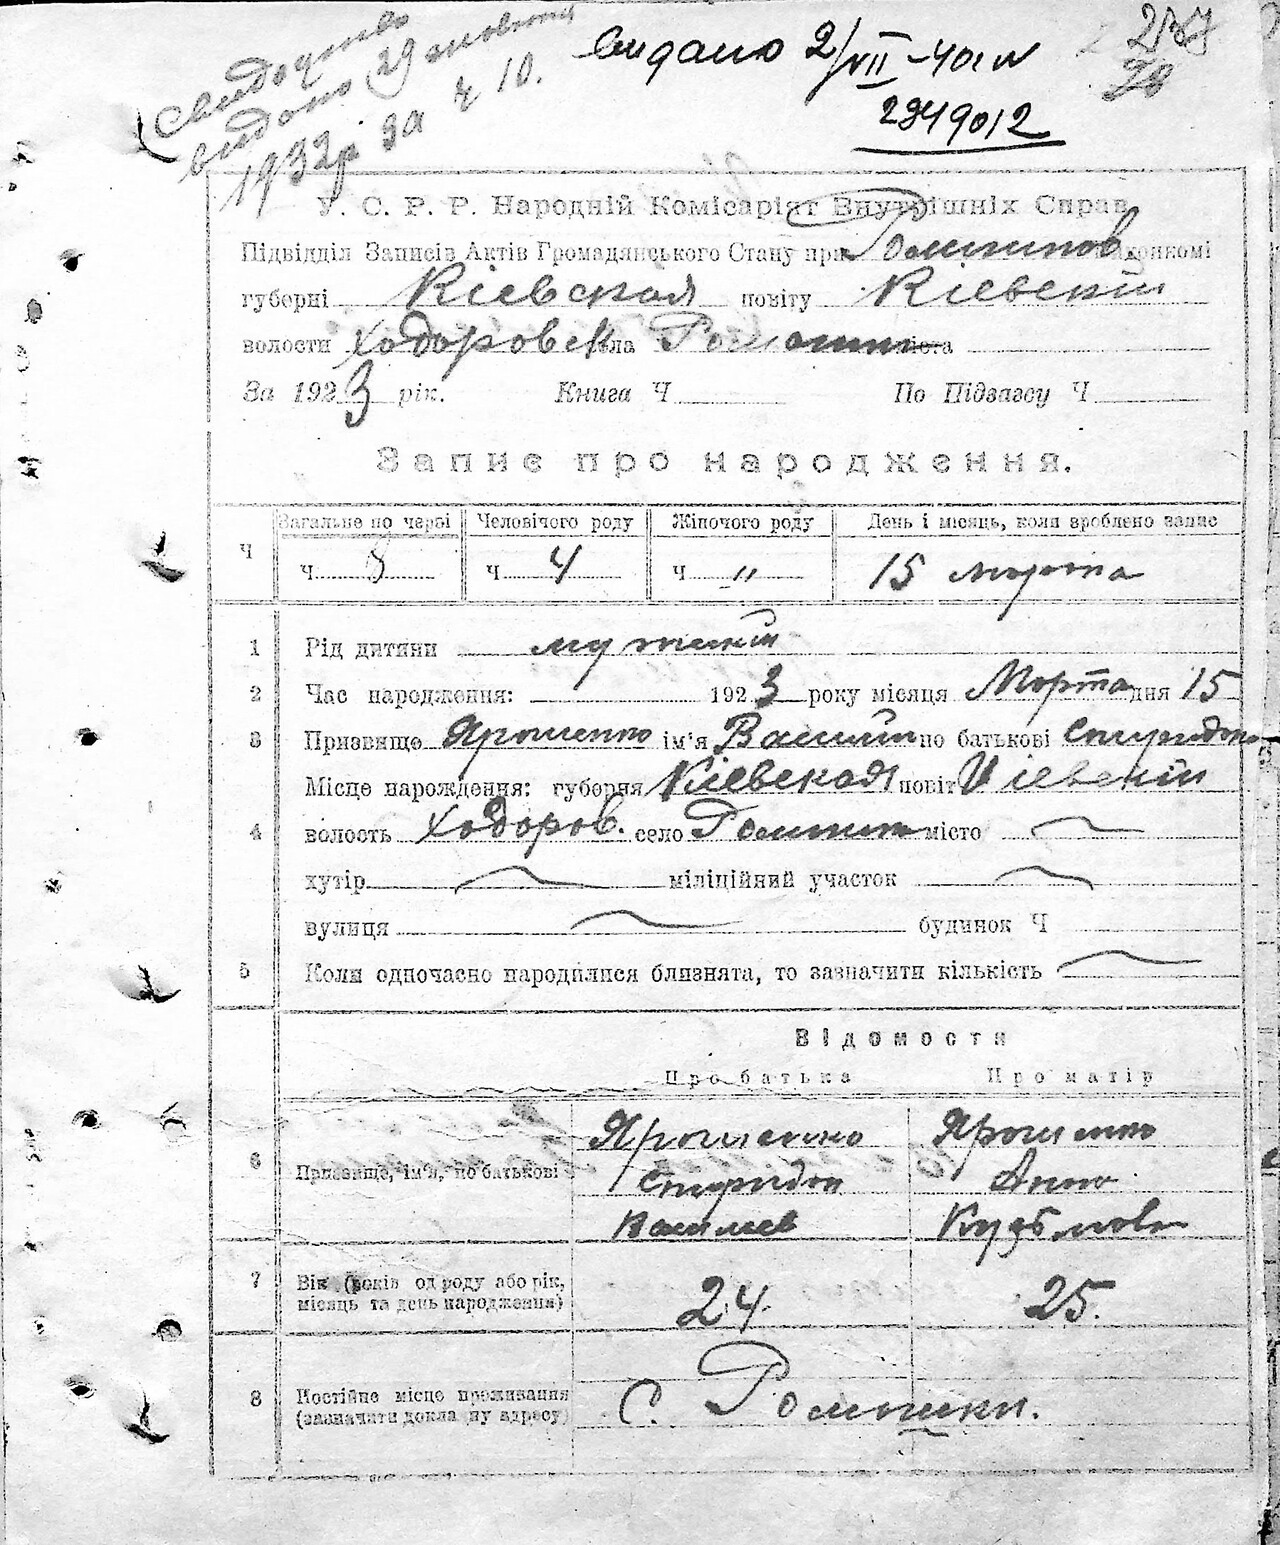 Свидоцтво
видано 29 жовтня
1932р за ч 10.
видано 2/VII-40г N
2949012
У. С. Р. Р. Народній Комісаріят Внутрішніх Справ
Підвідділ Записів Актів Громадянського Стану при
губерні Кіевская повіту Кіевскій
волости Ходоровск села міста
За 1923 рік. Книга Ч По Підзагсу Ч
Запис про народження.
Ч Загальне по черзі Человічого роду Жіночого роду День і місяць, коли зроблено запис
ч 8 ч 4 ч " 15 марта
1 Рід дитяни мужский
2 Час народження: 1923 року місяця Марта дня 15
3 Призвище Ярошенко ім'я Василий по батькові Спиридон
Місце нарождення: губерня Кіевская повіт Кіевскій
4 волость Ходоров. село місто
хутір міліційний участок
вулиця будинок Ч
5 Коли одночасно народилися близнята, то зазначити кількість
Відомости
Про батька Про матір
6 Призвище, ім'я, по батькові
Ярошенко Ярошенко
Спиридон Анна
Васильев Кузьмова
7 Вік (років од роду або рік, місяць та день народження) 24. 25.
8 Постійне місце проживання
(зазначити докладну адресу) С. Ромашки.